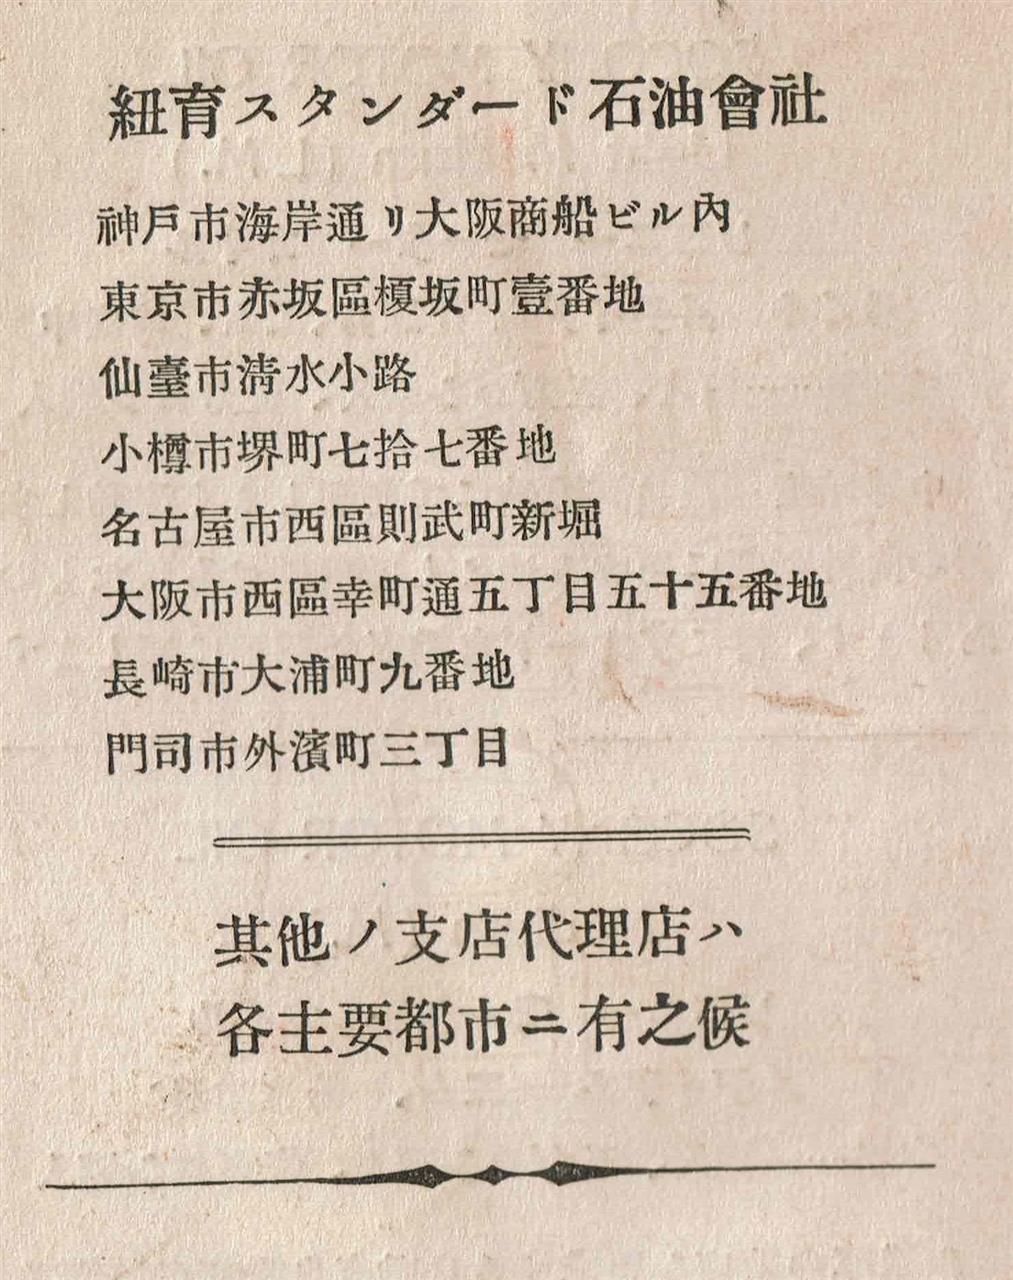 紐育スタンダード石油會社
神戶市海岸通リ大阪商船ビル內
東京市赤坂區榎坂町壹番地
仙臺市淸水小路
小樽市堺町七拾七番地
名古屋市西區則武町新堀
大阪市西區幸町通五丁目五十五番地
長崎市大浦町九番地
門司市外濱町三丁目
其他ノ支店代理店ハ
各主要都市ニ有之候